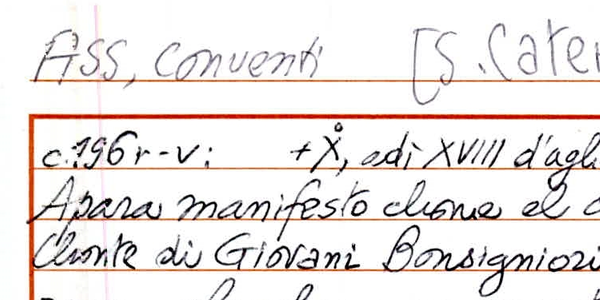 ASS, Conventi [S. Cater
c. 196r-v: +X°, adì XVIII d'agh
Apara manifesto chome el
Chonte di Giovani Bonsigniori